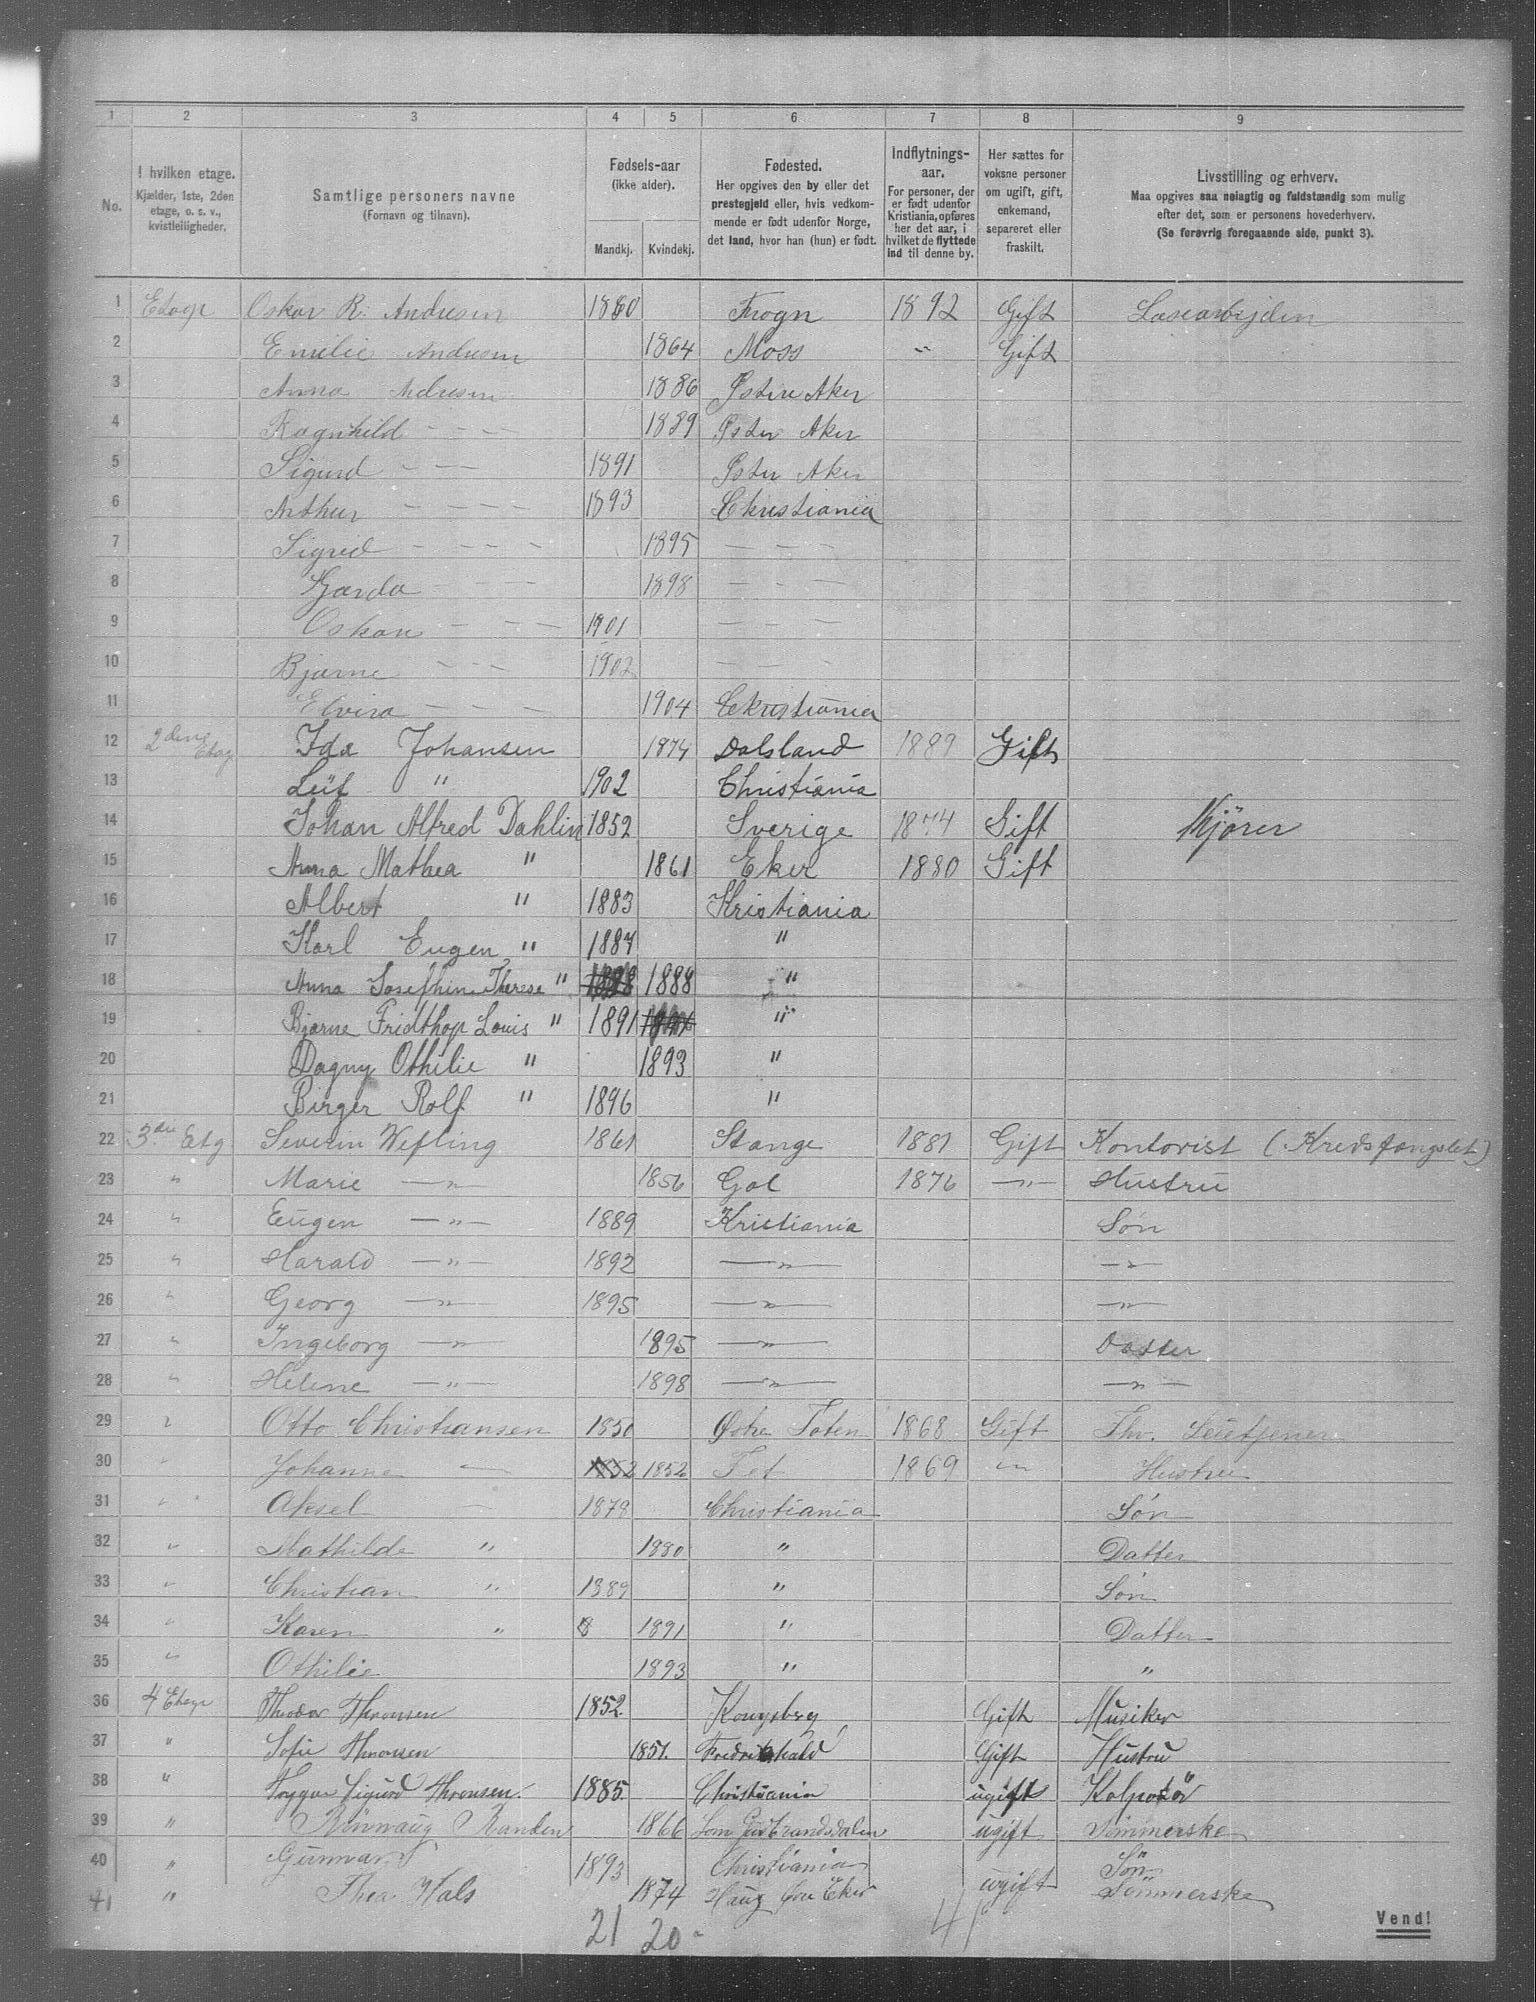 1 2 3 4 5 6 7 8 9
No.
I hvilken etage.
Kjælder, 1ste, 2den etage, o. s. v., kvistleiligheder.
Samtlige personers navne
(Fornavn og tilnavn).
Fødsels-aar
(ikke alder).
Mandkj. Kvindekj.
Fødested.
Her opgives den by eller det prestegjeld eller, hvis vedkommende er født udenfor Norge, det land, hvor han (hun) er født.
Indflytnings-aar.
For personer, der er født udenfor Kristiania, opføres her det aar, i hvilket de flyttede ind til denne by.
Her sættes for voksne personer om ugift, gift, enkemand, separeret eller fraskilt.
Livsstilling og erhverv.
Maa opgives saa nøiagtig og fuldstændig som mulig efter det, som er personens hovederhverv.
(Se forøvrig foregaaende side, punkt 3).
1 Etage Oskar R. Andresen 1860 Frogn 1892 Gift Løsearbejden
2 Emilie Andresen 1864 Moss " Gift
3 Anna Andresen 1886 Østre Aker
4 Ragnhild - - - 1889 Øster Aker
5 Sigurd - - 1891 Øster Aker
6 Arthur - - - - 1893 Christiania
7 Sigrid - - - - 1895 - - -
8 Gjærda - - - 1898 - - -
9 Oskar - - - 1901 - - -
10 Bjarne - - - 1902 - - -
11 Elvira - - - 1904 Christiania
12 2den Etag Ida Johansen 1874 Dalsland 1889 Gift
13 Leif " 1902 Christiania
14 Johan Alfred Dahlin 1852 Sverige 1874 Gift Kjører
15 Anna Mathea " 1861 Eker 1880 Gift
16 Albert " 1883 Kristiania
17 Karl Eugen " 1887 "
18 Anna Josefhine Therese " 1888 "
19 Bjarne Fridthop Louis " 1891 "
20 Dagny Othilie " 1893 "
21 Birger Rolf " 1896 "
22 3die Etg Severin Wefling 1861 Stange 1881 Gift Kontorist (Kredsfængslet)
23 " Marie —"— 1856 Gol 1876 —"— Hustru
24 " Eugen —"— 1889 Kristiania Søn
25 " Harald —"— 1892 —"— —"—
26 " Georg —"— 1895 —"— —"—
27 " Ingeborg —"— 1895 —"— Datter
28 " Helene —"— 1898 —"— —"—
29 " Otto Christiansen 1850 Østre Toten 1868 Gift
30 " Johanne — 1852 1852 Fet 1869 " Hustru
31 " Aksel — 1878 Christiania Søn
32 " Mathilde " 1880 " Datter
33 " Christian " 1889 " Søn
34 " Karen " 8 1891 " Datter
35 " Othilie 1893 " "
36 4 Etage Theodor Thronsen 1852 Kongsberg Gift Musiker
37 " Sofie Thronsen 1851. Fredrikshald Gift Hustru
38 " Trygve Sigurd Thronsen. 1885. Christiania ugift Kolportør
39 " Rönnaug Randen 1866 Lom Gudbrandsdalen ugift Sömmerske
40 " Gunnar 1893 Christiania Søn
41 " Thea Hals 1874 Haug Øvre Eker ugift Sömmerske
21 20 41
Vend!